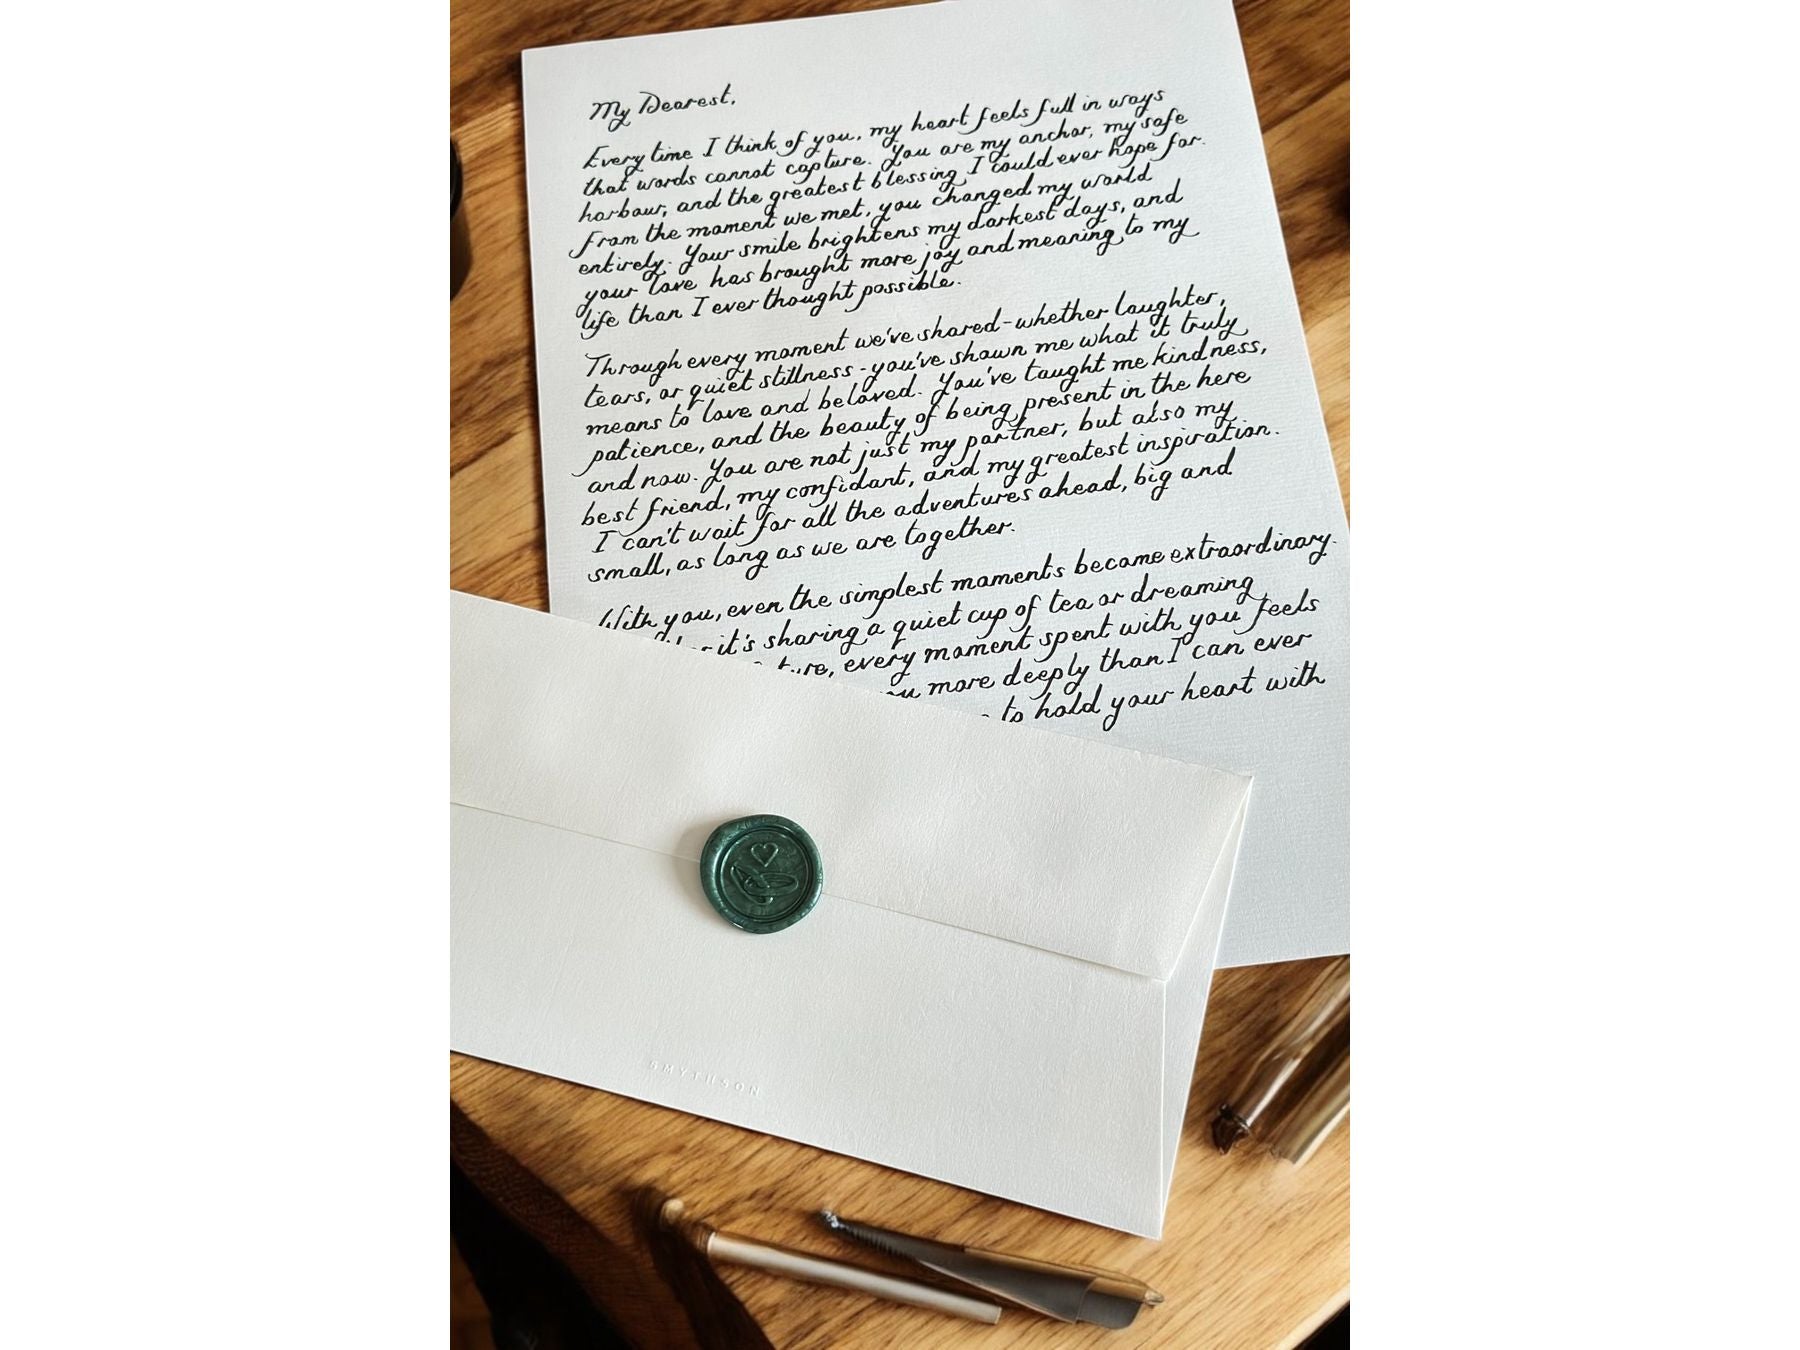 My Dearest,
Every time I think of you, my heart feels full in ways
that words cannot capture. You are my anchor, my safe
harbour, and the greatest blessing I could ever hope for.
From the moment we met, you changed my world
entirely. Your smile brightens my darkest days, and
your love has brought more joy and meaning to my
life than I ever thought possible.
Through every moment we've shared-whether laughter,
tears, or quiet stillness-you've shown me what it truly
means to love and beloved. You've taught me kindness,
patience, and the beauty of being present in the here
and now. You are not just my partner, but also my
best friend, my confidant, and my greatest inspiration.
I can't wait for all the adventures ahead, big and
small, as long as we are together.
With you, even the simplest moments become extraordinary.
it's sharing a quiet cup of tea or dreaming
every moment spent with you feels
more deeply than I can ever
to hold your heart with
SMYTHSON